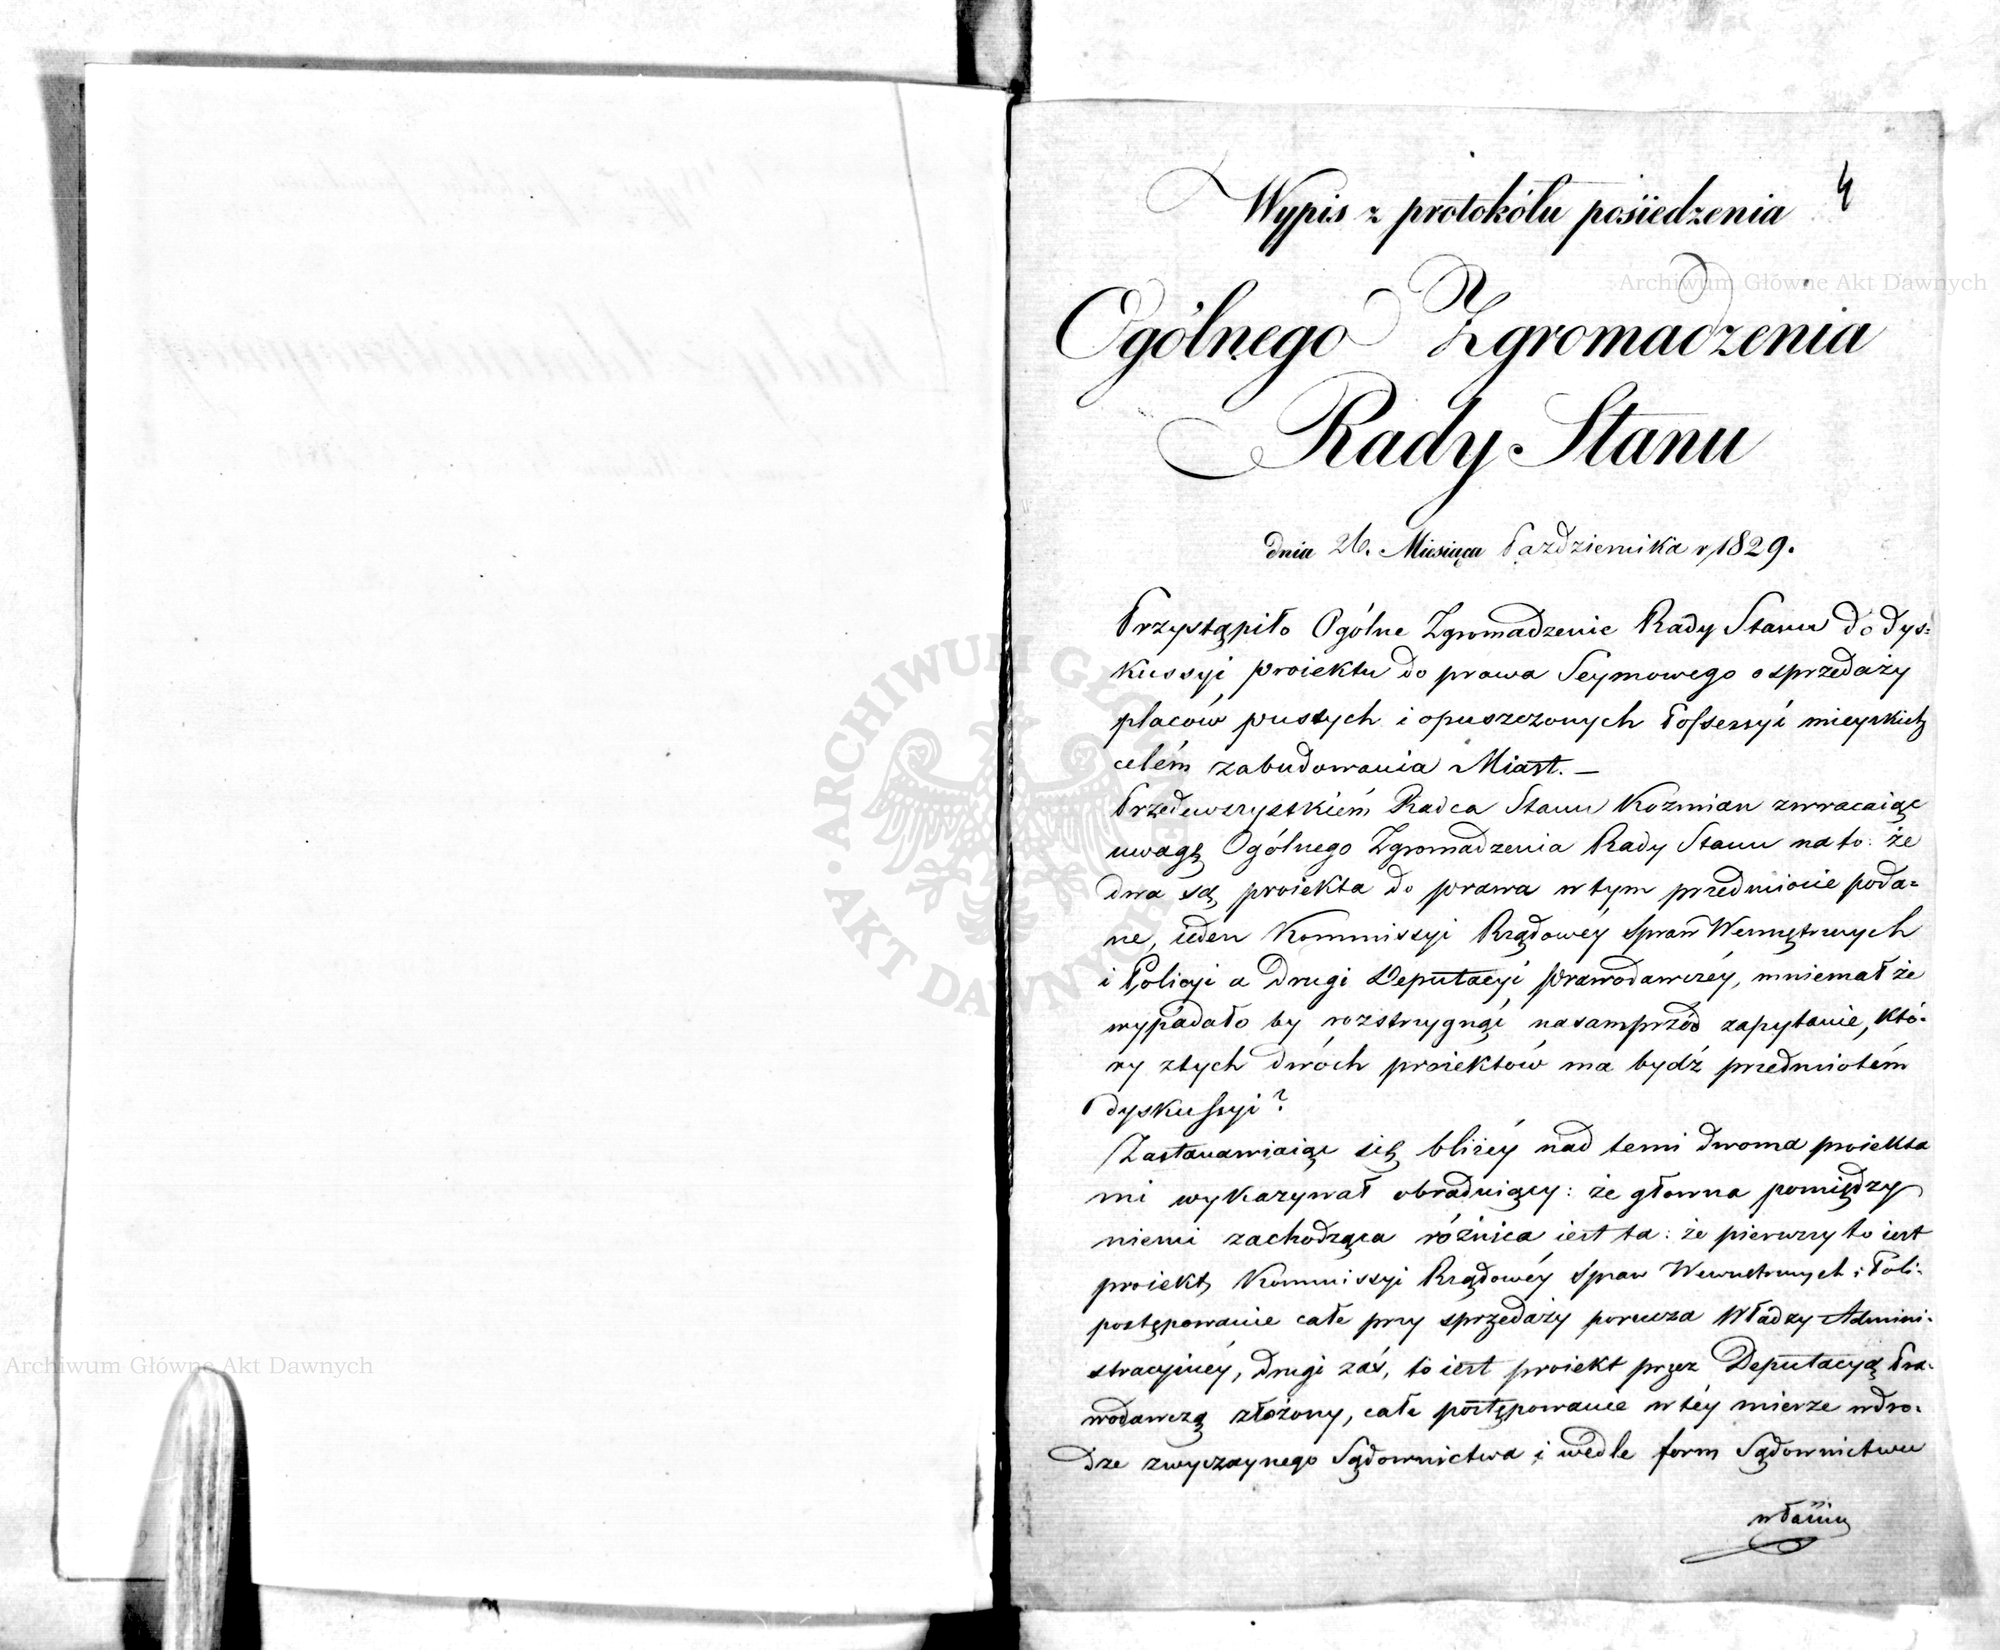 4
Wypis z protokółu posiedzenia
Ogólnego Zgromadzenia
Rady Stanu
dnia 26. Miesiąca Października r 1829.
Przystąpiło Ogólne Zgromadzenie Rady Stanu do dys=
kussyi proiektu do prawa Seymowego o sprzedaży
placów pustych i opuszczonych Possessyi mieyskich
celém zabudowania Miast. —
Przedewszystkiém Radca Stanu Kozmian zwracaiąc
uwagę Ogólnego Zgromadzenia Rady Stanu na to: że
dwa są proiekta do prawa w tym przedmiocie poda=
ne, ieden Kommissyi Rządowéy Spraw Wewnętrznych
i Policyi a drugi Deputacyi Prawodawczéy, mniemał że
wypadało by rozstrzygnąć nasamprzód zapytanie, któ-
ry z tych dwóch proiektów ma bydź przedmiotém
dyskussyi?
Zastanawiaiąc się bliżéy nad temi dwoma proiekta
mi wykazywał obraduiący: że głowna pomiędzy
niemi zachodząca różnica iest ta: że pierwszy to iest
proiekt Kommissyi Rządowéy Spraw Wewnętrznych i Poli:
postępowanie całe przy sprzedaży porucza Władzy Admini-
stracyinéy, drugi zaś, to iest proiekt przez Deputacyą Pra-
wodawczą złożony, całe postępowanie w téy mierze w dro-
dze zwyczaynego Sądownictwa i wedle form Sądownictwu
Archiwum Główne Akt Dawnych
Archiwum Główne Akt Dawnych
ARCHIWUM GŁÓWNE AKT DAWNYCH